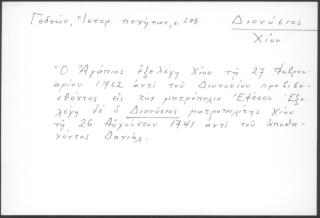 Γεδεών, Ἱστορ. πενήτων, σ. 248
Διονύσιος
Χίου
"Ὁ Ἀγάπιος ἐξελέγη Χίου τῇ 27 Φεβρου-
αρίου 1762 ἀντὶ τοῦ Διονυσίου προβιβα-
σθέντος εἰς τὴν μητρόπολιν Ἐφέσου. Ἐξε-
λέγη δὲ ὁ Διονύσιος μητροπολίτης Χίου
τῇ 26 Αὐγούστου 1741 ἀντὶ τοῦ ἀποθα-
νόντος Δανιήλ.